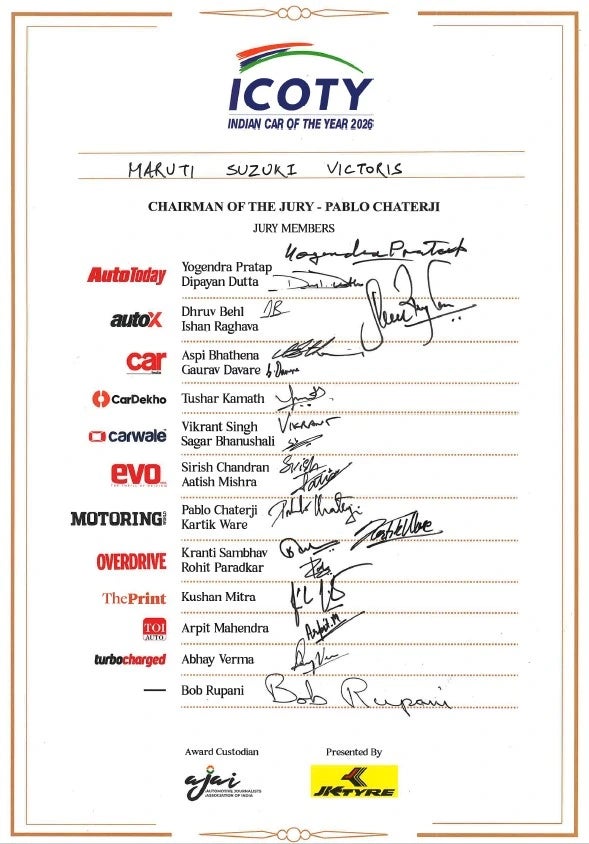 ICOTY
INDIAN CAR OF THE YEAR 2026
MARUTI SUZUKI VICTORIS
CHAIRMAN OF THE JURY - PABLO CHATERJI
JURY MEMBERS
Yogendra Pratap
AutoToday
Yogendra Pratap
Dipayan Dutta
autoX
Dhruv Behl DB
Ishan Raghava
car
India
Aspi Bhathena
Gaurav Davare
CarDekho
Tushar Kamath
carwale
Vikrant Singh VIKRANT
Sagar Bhanushali
evo
Sirish Chandran Sirish
Aatish Mishra
MOTORING WORLD
Pablo Chaterji Pablo Chaterji
Kartik Ware Kartik Ware
OVERDRIVE
Kranti Sambhav
Rohit Paradkar
ThePrint
Kushan Mitra
TOI
AUTO
Arpit Mahendra Arpit.M
turbocharged
Abhay Verma
— Bob Rupani Bob Rupani
Award Custodian
Presented By
ajai
AUTOMOTIVE JOURNALISTS
ASSOCIATION OF INDIA
JK TYRE